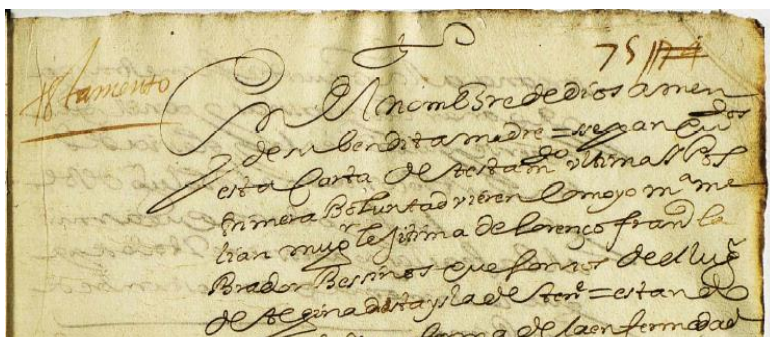 75
testamento
En El nombre de dios amen
de su bendita madre = sepan quantos
esta Carta de testamto ultima y Pos
trimera Boluntad vieren Como yo ma me
lian muger lejitima de Lorenço franco la
Brador Besinos que somos de el lugr
de tegina desta ysla de tene = estando
de la enfermedad